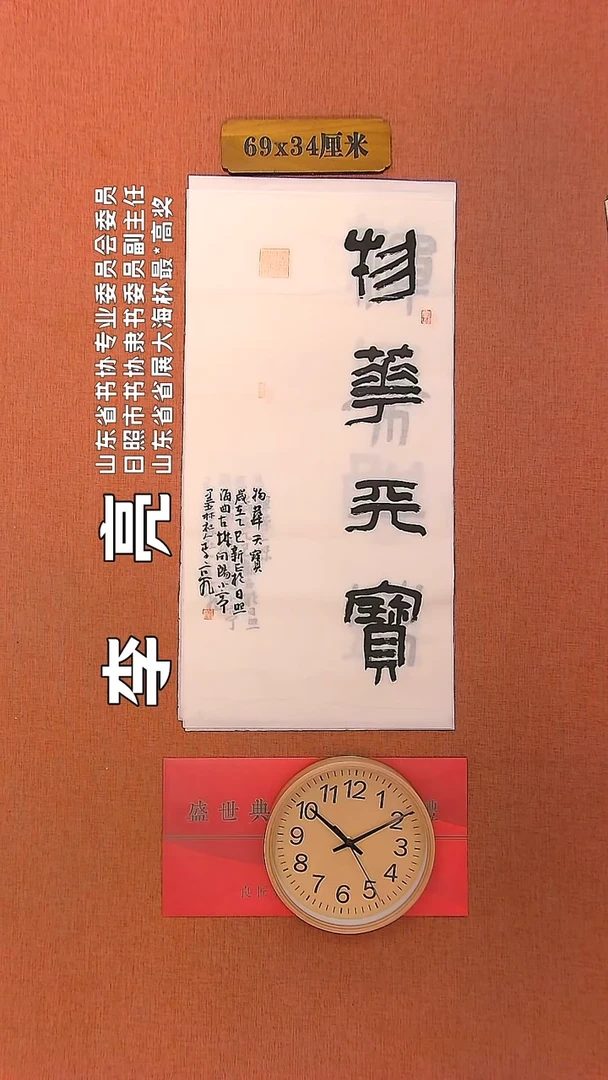 69x34厘米
山东省书协专业委员会委员
日照市书协隶书委员副主任
山东省省展大海杯最*高奖
李亮
物華天寶
物華天寶
歲在乙巳新正於日照
海曲古城向陽小亭
李亮
盛世典
12
1
2
3
4
5
6
7
8
9
10
11